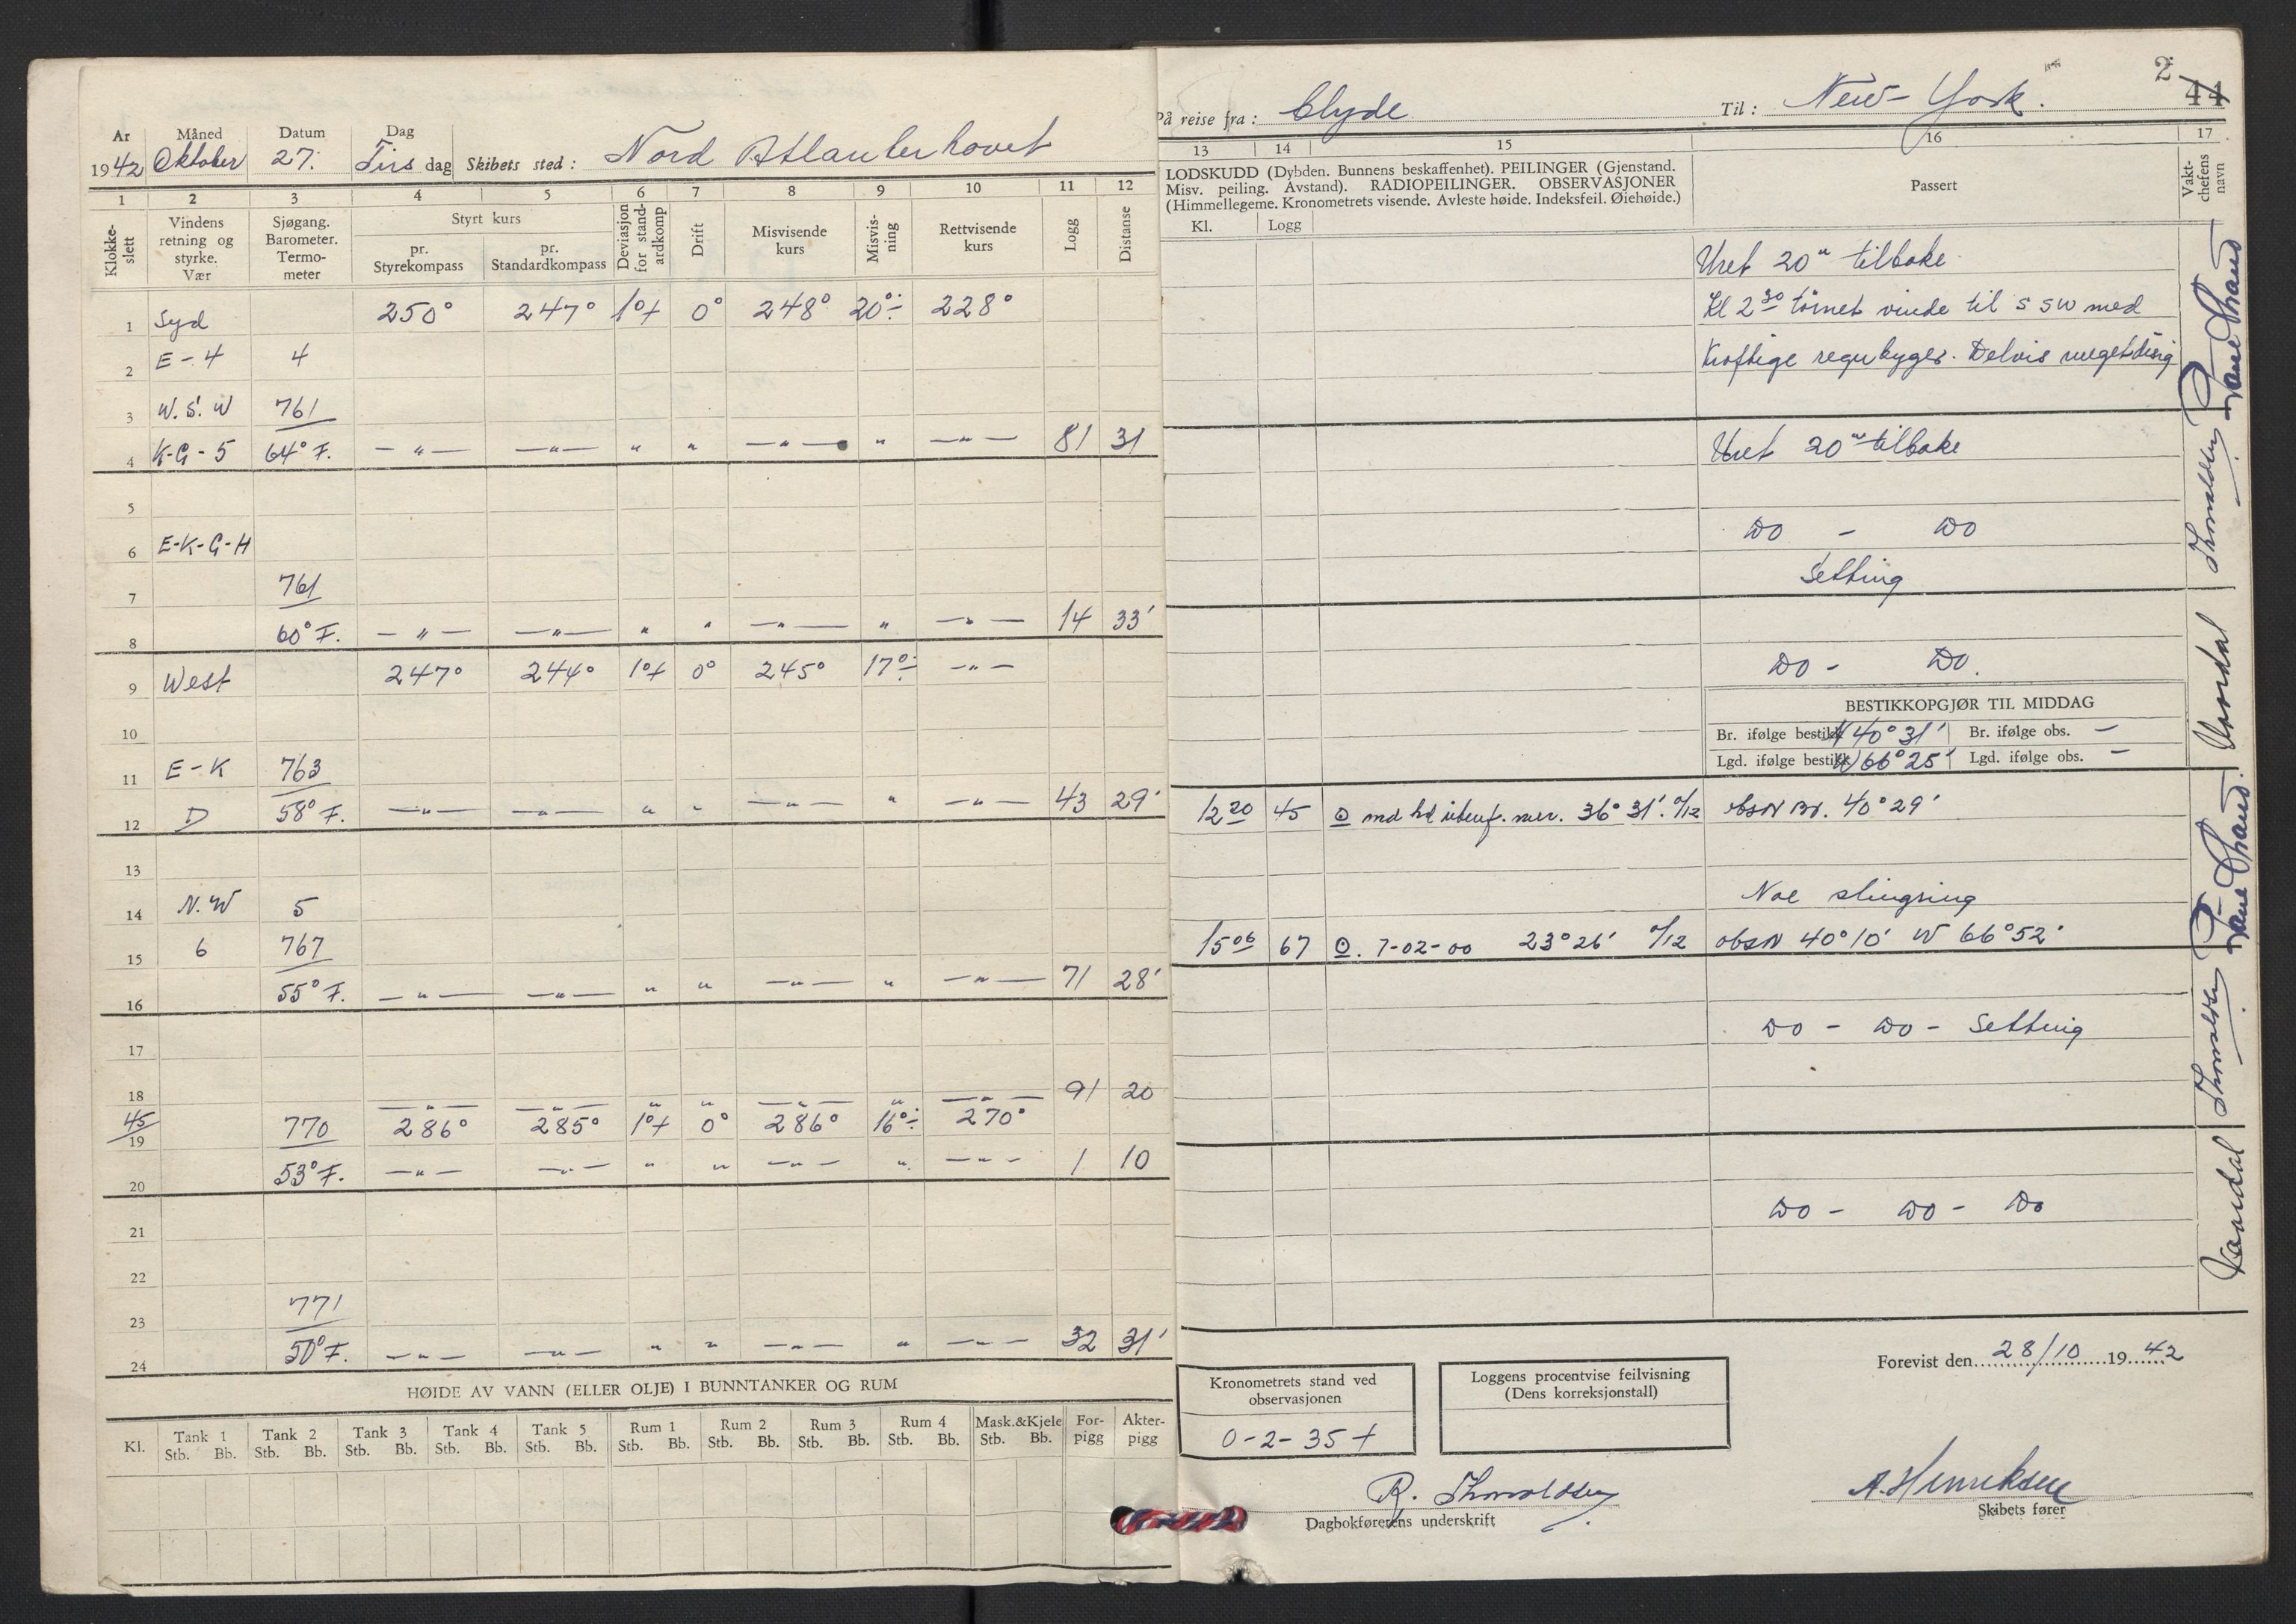 Ar Måned Datum Dag
1942 Oktober 27. Tirsdag Skibets sted: Nord Atlanterhavet
1 2 3 4 5 6 7 8 9 10 11 12
Klokkeslett
Vindens retning og styrke. Vær
Sjøgang. Barometer. Termometer
Styrt kurs
pr. Styrekompass
pr. Standardkompass
Deviasjon for standardkomp
Drift
Misvisende kurs
Misvisning
Rettvisende kurs
Logg
Distanse
1 Syd 250° 247° 1°+ 0° 248° 20°÷ 228°
2 E-4 4
3 W.S.W 761
4 K-G-5 64° F. —"— —"— " " —"— " —"— 81 31
5
6 E-K-G-H
7 761
8 60° F. —"— —"— " " —"— " —"— 14 33'
9 West 247° 244° 1°+ 0° 245° 17°÷ —"—
10
11 E-K 763
12 D 58° F. —"— —"— " " —"— " —"— 43 29'
13
14 N.W 5
15 6 767
16 55° F. —"— —"— " " —"— " —"— 71 28'
17
18 —"— —"— " " —"— " —"— 91 20
45
19 770 286° 285° 1°+ 0° 286° 16°÷ 270°
20 53° F. —"— —"— " " —"— " —"— 1 10
21
22
23 771
24 50° F. —"— —"— " " —"— " —"— 32 31'
HØIDE AV VANN (ELLER OLJE) I BUNNTANKER OG RUM
Kl. Tank 1 Tank 2 Tank 3 Tank 4 Tank 5 Rum 1 Rum 2 Rum 3 Rum 4 Mask.&Kjele For-pigg Akter-pigg
Stb. Bb. Stb. Bb. Stb. Bb. Stb. Bb. Stb. Bb. Stb. Bb. Stb. Bb. Stb. Bb. Stb. Bb. Stb. Bb.
2
44
På reise fra: Clyde Til: New-York.
13 14 15 16 17
LODSKUDD (Dybden. Bunnens beskaffenhet). PEILINGER (Gjenstand.
Misv. peiling. Avstand). RADIOPEILINGER. OBSERVASJONER
(Himmellegeme. Kronometrets visende. Avleste høide. Indeksfeil. Øiehøide.)
Passert
Vaktchefens navn
Kl. Logg
Uret 20m tilbake
Kl 2 30 tørnet vinde til SSW med
Kraftige regnbyger. Delvis meget disig
Uret 20m tilbake
Do - Do
Setting
Do - Do.
BESTIKKOPGJØR TIL MIDDAG
Br. ifølge bestikk N 40° 31' Br. ifølge obs. —
Lgd. ifølge bestikk W 66° 25' Lgd. ifølge obs. —
12 20 45 ⊙ mer. 36° 31'. 0/12 obsN Br. 40° 29'
Noe slingring
15 06 67 ⊙. 7-02-00 23° 26' 0/12 obsN 40° 10' W 66° 52'
Do - Do - Setting
Do - Do - Do
Thmoldsen
Vordal
Thmoldsen
Vordal
Kronometrets stand ved observasjonen
0-2-35+
Loggens procentvise feilvisning
(Dens korreksjonstall)
Forevist den 28/10 1942
R. Thmoldsen
Dagbokførerens underskrift
A. Henriksen
Skibets fører